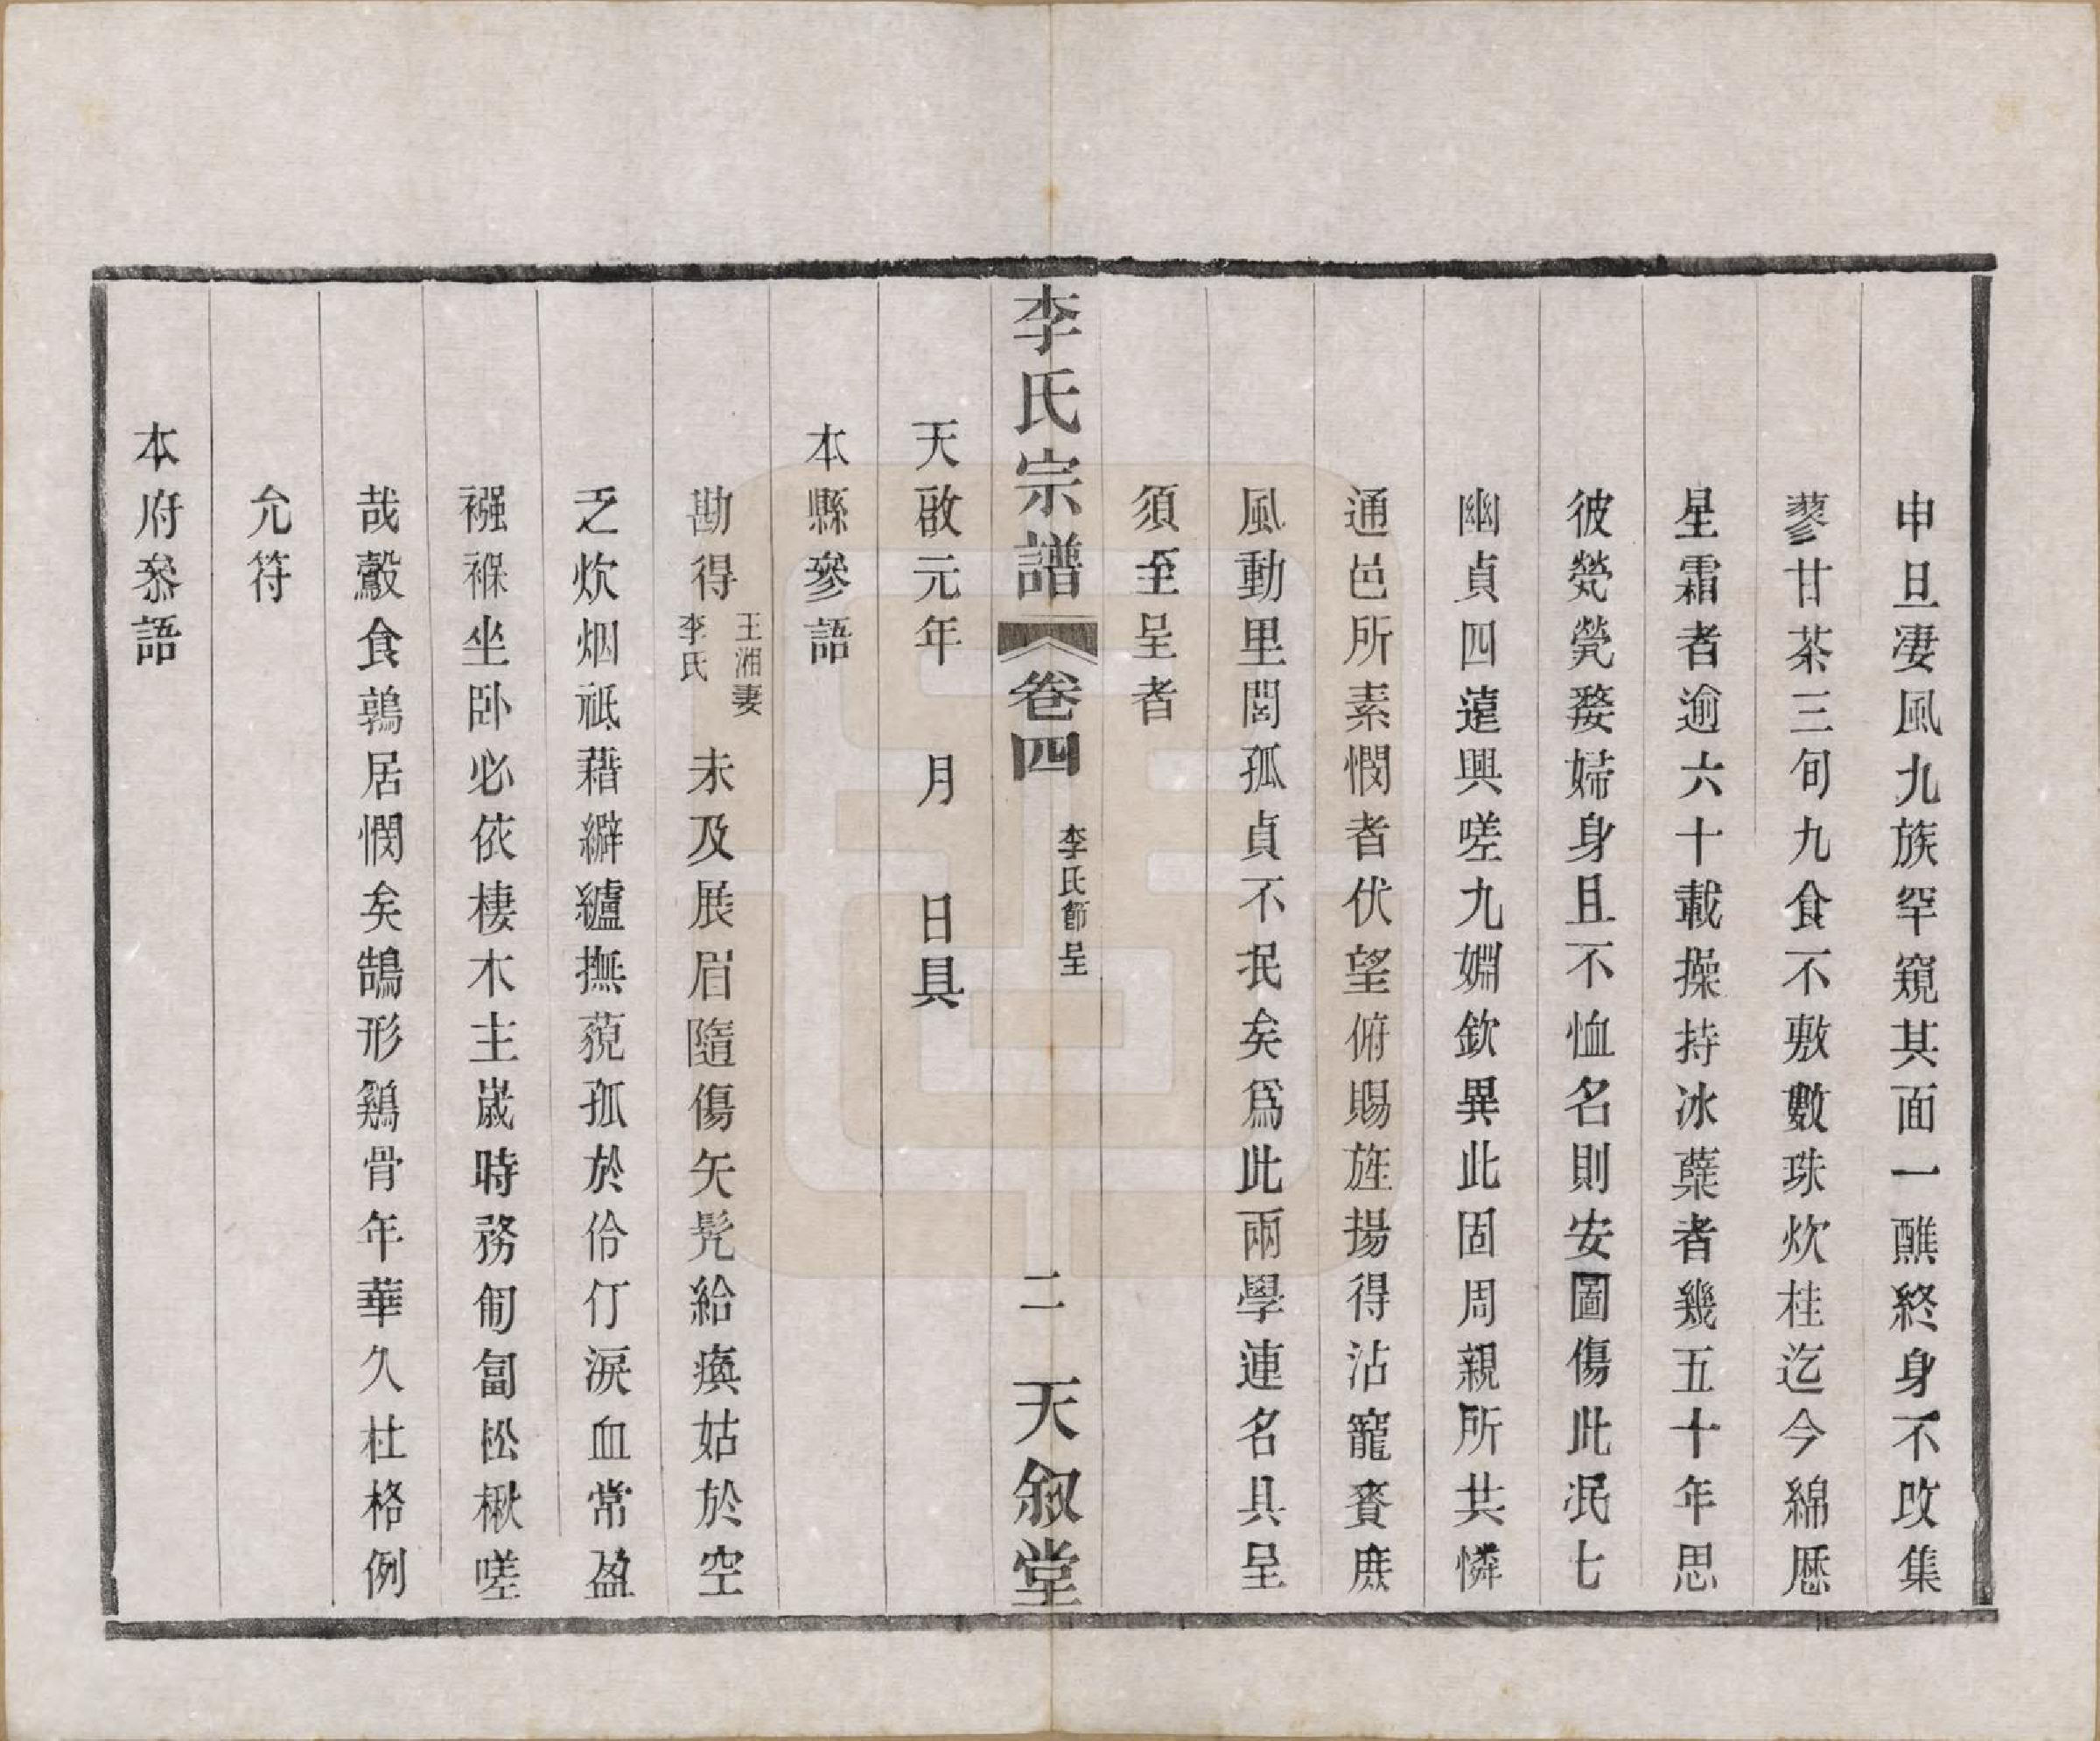 申旦凄風九族罕窺其面一醮終身不改集
蓼甘茶三旬九食不敷數珠炊桂迄今綿歷
星霜者逾六十載操持冰蘗者幾五十年思
彼煢煢嫠婦身且不恤名則安圖傷此泯七
幽貞四薳興嗟九嫺欽異此固周親所共憐
通邑所素憫者伏望俯賜旌揚得沾寵賚庶
風動里閭孤貞不泯矣爲此兩學連名具呈
須至呈者
李氏宗譜 卷四 李氏節呈 二 天敘堂
天啟元年 月 日具
本縣參語
勘得王湘妻李氏 未及展眉隨傷矢髡給瘓姑於空
乏炊烟祗藉繲纑撫藐孤於伶仃淚血常盈
襁褓坐卧必依棲木主嵗時務匍匐松楸嗟
哉鷇食鶉居憫矣鵠形鷄骨年華久杜格例
允符
本府叅語